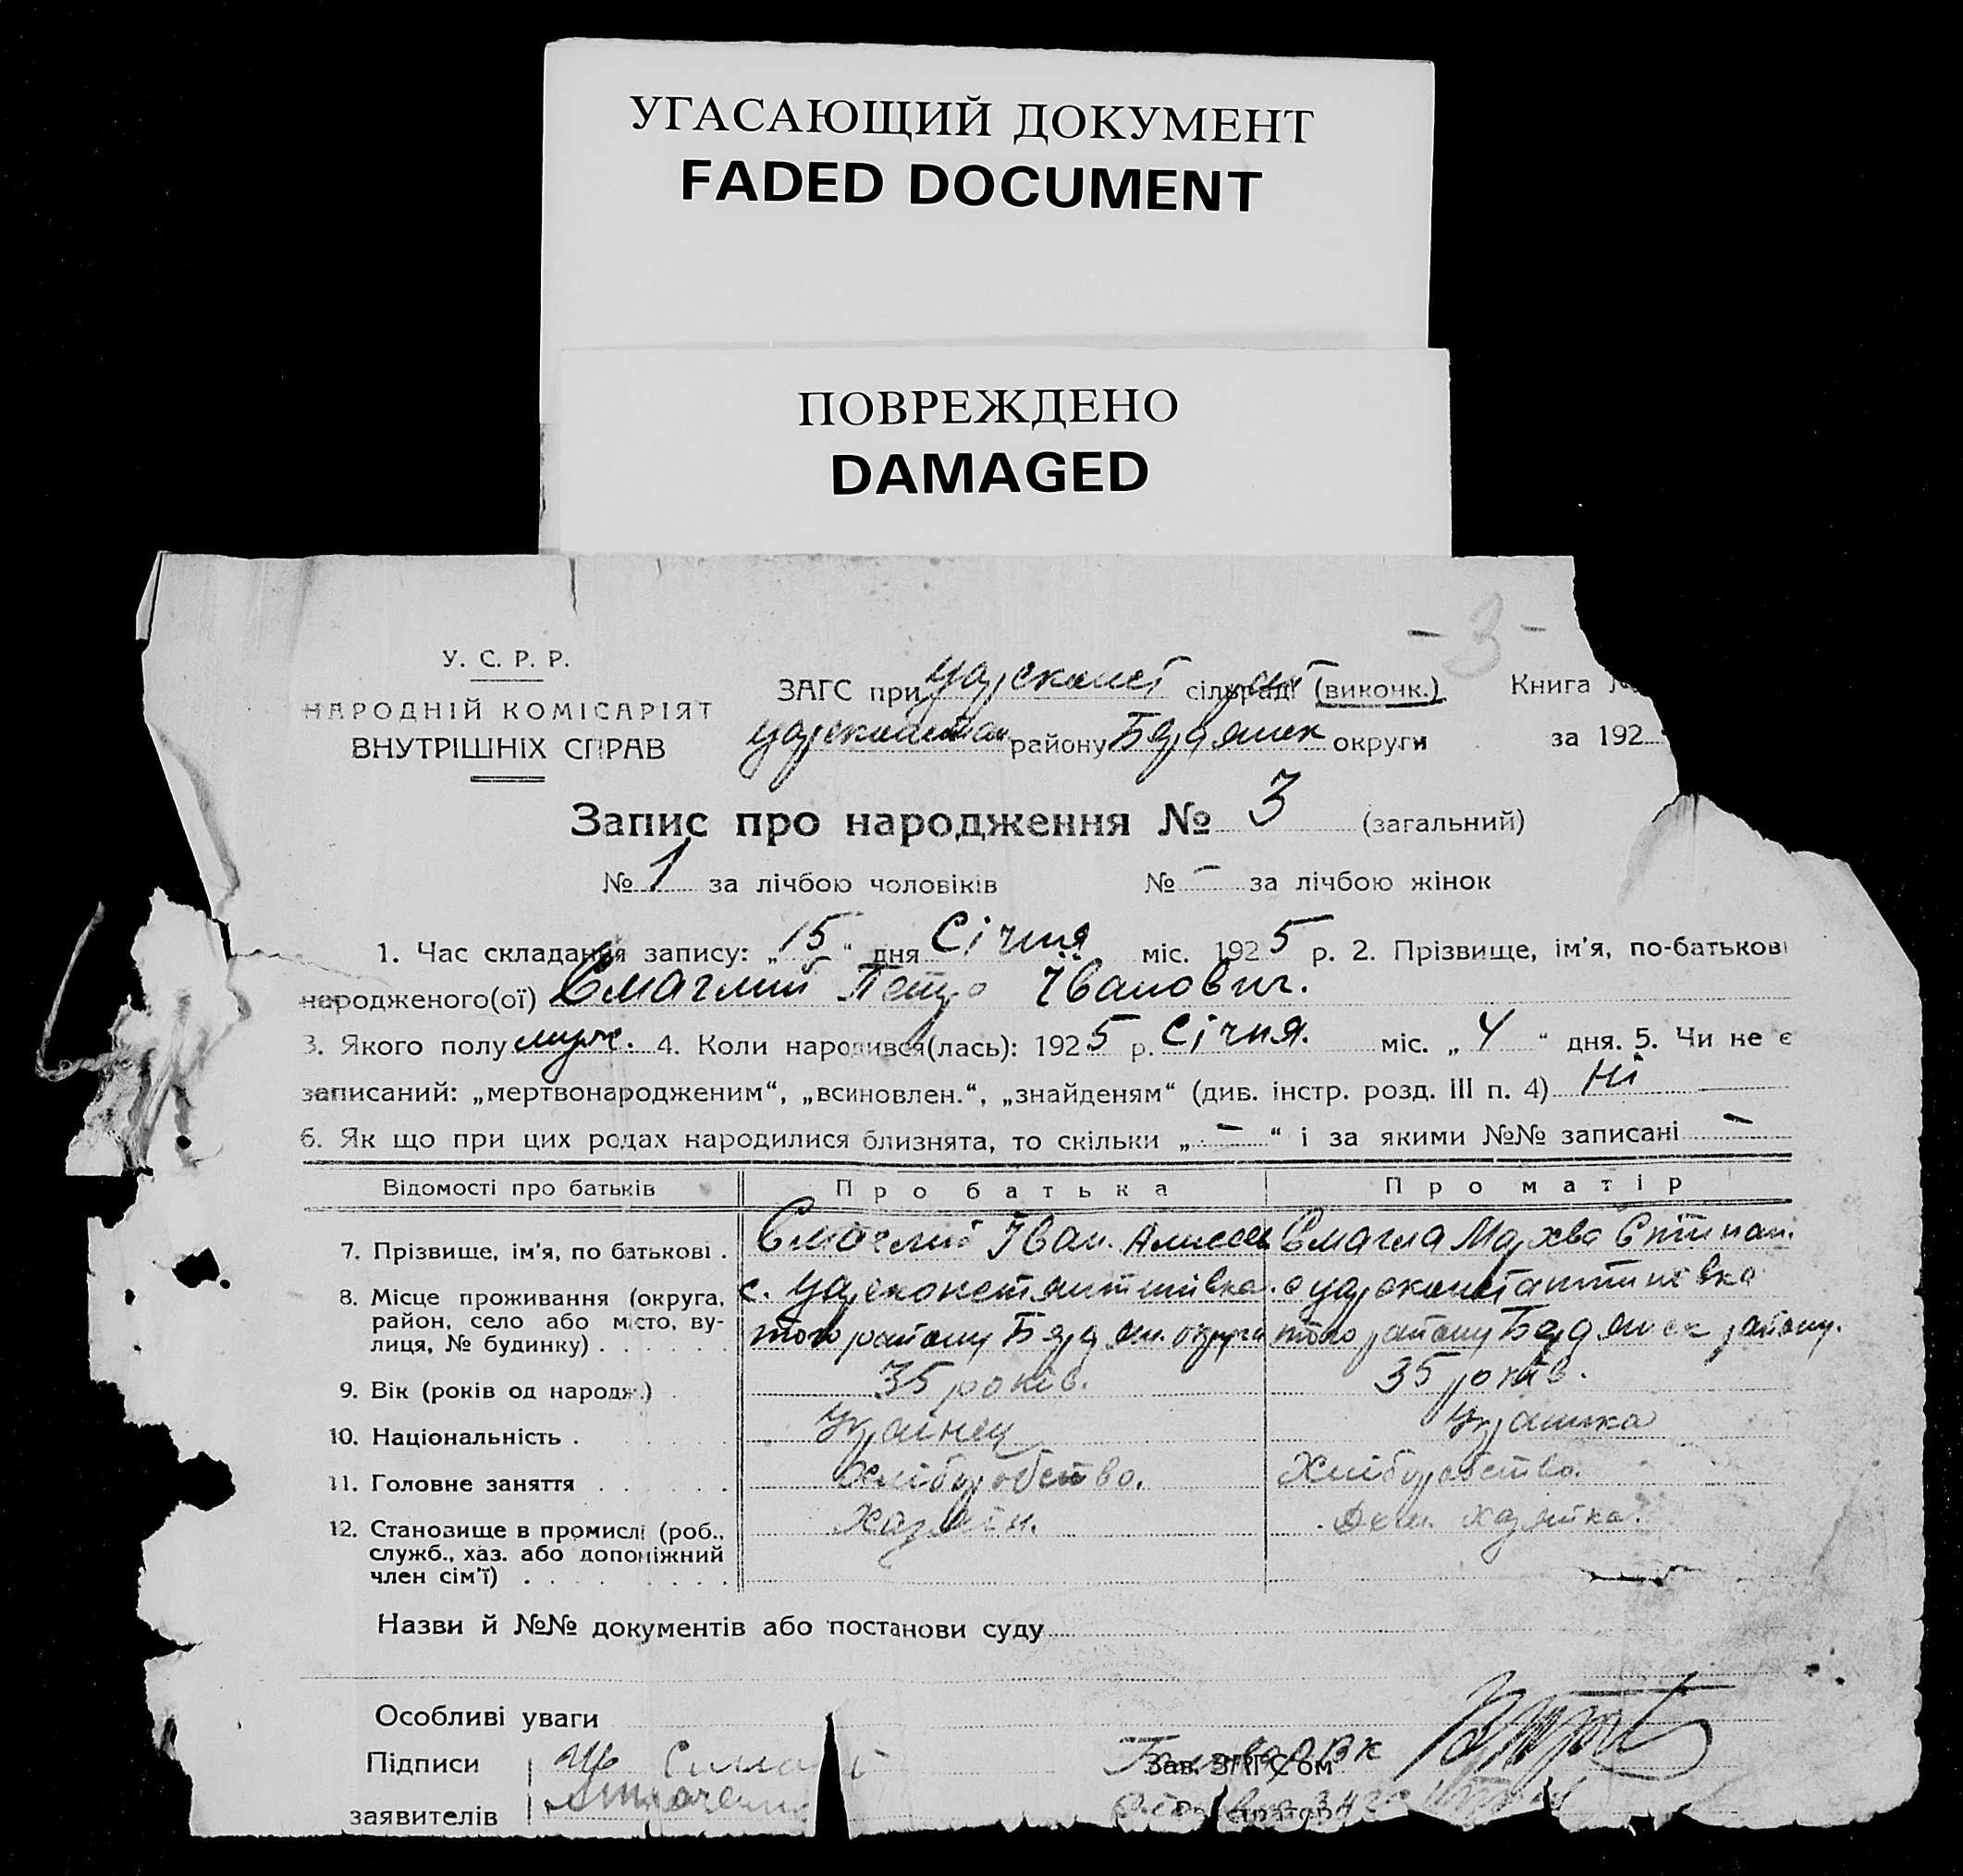 УГАСАЮЩИЙ ДОКУМЕНТ
FADED DOCUMENT
ПОВРЕЖДЕНО
DAMAGED
- 3 -
У. С. Р. Р.
НАРОДНІЙ КОМІСАРІЯТ
ВНУТРІШНІХ СПРАВ
ЗАГС при Царсконст сільраді (виконк.) Книга №
району Бердянск округи за 192
Запис про народження № 3 (загальний)
№ 1 за лічбою чоловіків № - за лічбою жінок
1. Час складання запису: „15“ дня Січня міс. 1925 р. 2. Прізвище, ім’я, по-батькові
народженого(ої) Смаглий Петро Іванович.
3. Якого полу муж. 4. Коли народився(лась): 1925 р. Січня. міс. „4“ дня. 5. Чи не є
записаний: „мертвонародженим“, „всиновлен.“, „знайденям“ (див. інстр. розд. III п. 4) Ні
6. Як що при цих родах народилися близнята, то скільки „-“ і за якими №№ записані -
Відомості про батьків Про батька Про матір
7. Прізвище, ім’я, по батькові . Смаглий Іван Смагла Степан.
8. Місце проживання (округа, район, село або місто, вулиця, № будинку) . . . . . . с. Царсконстянтинівка. с Царсконстантинівка
того району Бердян. округи того району Бердянск району.
9. Вік (років од народж.) . 35 років. 35 років.
10. Національність . Українец Українка
11. Головне заняття . . . . . . Хліборобство. Хліборобство.
12. Становище в промислі (роб., служб., хаз. або допоміжний член сім’ї) . . . . . . Хазяїн. хазяйка.
Назви й №№ документів або постанови суду
Особливі уваги
Підписи
заявителів
Зав. ЗАГС’ом